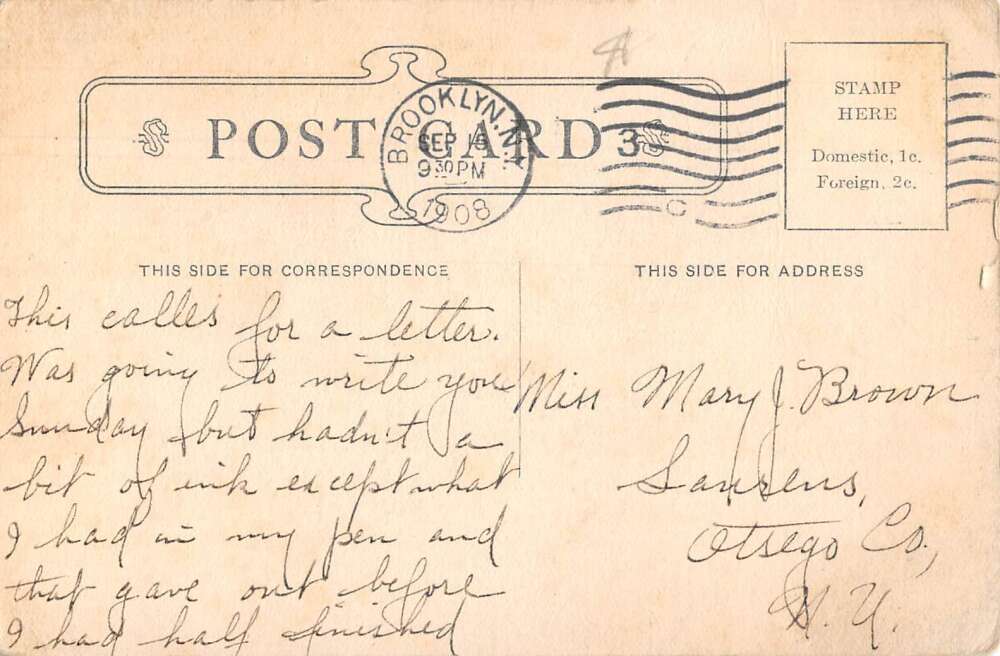 POST CARD
BROOKLYN, N.Y.
SEP 15
9 30 PM
1908
3
C
STAMP
HERE
Domestic, 1c.
Foreign, 2c.
THIS SIDE FOR CORRESPONDENCE
This calles for a letter.
Was going to write you
Sunday but hadn't a
bit of ink except what
I had in my pen and
that gave out before
I had half finished
THIS SIDE FOR ADDRESS
Miss Mary J. Brown
Laurens,
Otsego Co.,
N. Y.